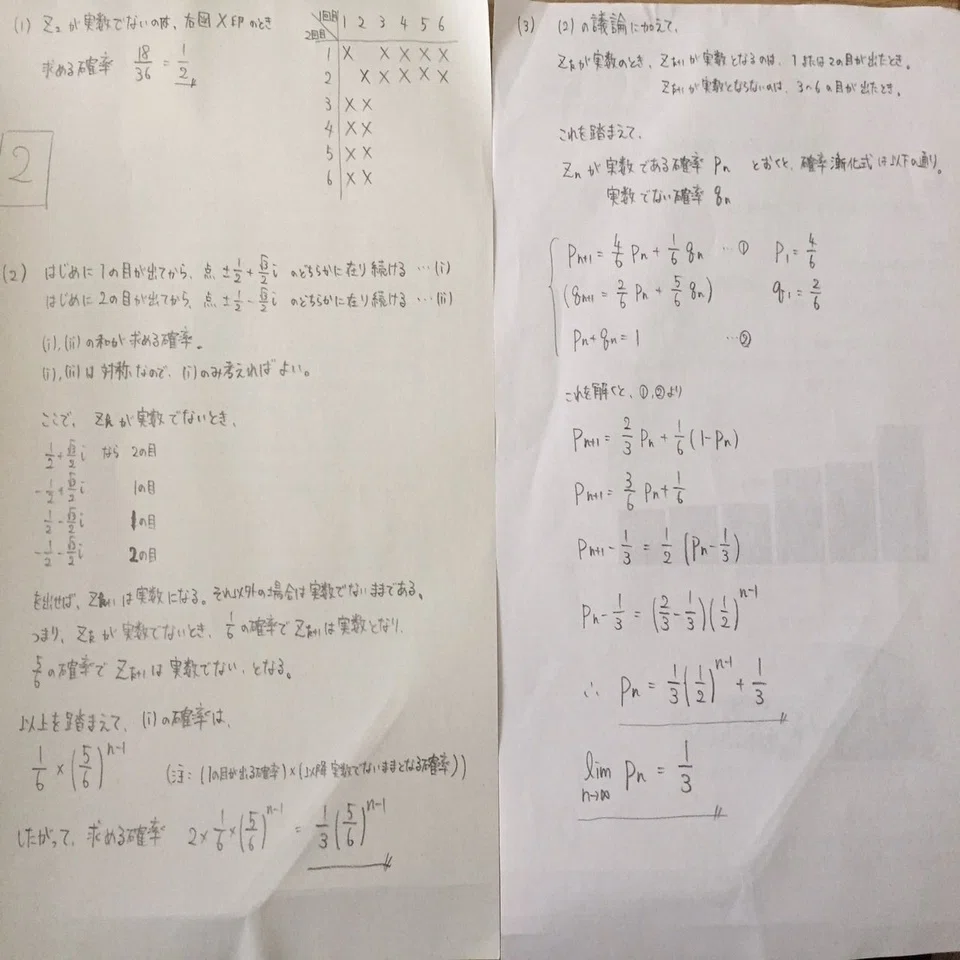 (1) Z₂ が実数でないのは、右図 X印 のとき
求める確率 18/36 = 1/2
1回目 1 2 3 4 5 6
2回目
1 X X X X X
2 X X X X X
3 X X
4 X X
5 X X
6 X X
2
(2) はじめに1の目が出てから、点 ±1/2+√3/2 i のどちらかに在り続ける … (i)
はじめに2の目が出てから、点 ±1/2-√3/2 i のどちらかに在り続ける … (ii)
(i), (ii) の和が求める確率。
(i), (ii) は対称なので、(i) のみ考えればよい。
ここで、Zₖ が実数でないとき、
1/2+√3/2 i なら 2の目
-1/2+√3/2 i 1の目
1/2-√3/2 i 1の目
-1/2-√3/2 i 2の目
を出せば、Zₖ₊₁ は実数になる。それ以外の場合は実数でないままである。
つまり、Zₖ が実数でないとき、1/6 の確率で Zₖ₊₁ は実数となり、
5/6 の確率で Zₖ₊₁ は実数でない、となる。
以上を踏まえて、(i) の確率は、
1/6 × (5/6)ⁿ⁻¹ (注: (1の目が出る確率)×(以降実数でないままとなる確率))
したがって、求める確率 2×1/6×(5/6)ⁿ⁻¹ = 1/3(5/6)ⁿ⁻¹
(3) (2) の議論に加えて、
Zₖ が実数のとき、Zₖ₊₁ が実数となるのは、1または2の目が出たとき。
Zₖ₊₁ が実数とならないのは、3~6 の目が出たとき。
これを踏まえて、
Zₙ が実数である確率 pₙ とおくと、確率漸化式は以下の通り。
実数でない確率 qₙ
pₙ₊₁ = 4/6 pₙ + 1/6 qₙ … ① p₁ = 4/6
(qₙ₊₁ = 2/6 pₙ + 5/6 qₙ) q₁ = 2/6
pₙ + qₙ = 1 … ②
これを解くと、①,②より
pₙ₊₁ = 2/3 pₙ + 1/6 (1-pₙ)
pₙ₊₁ = 3/6 pₙ + 1/6
pₙ₊₁ - 1/3 = 1/2 (pₙ - 1/3)
pₙ - 1/3 = (2/3 - 1/3)(1/2)ⁿ⁻¹
∴ pₙ = 1/3(1/2)ⁿ⁻¹ + 1/3
lim n→∞ pₙ = 1/3